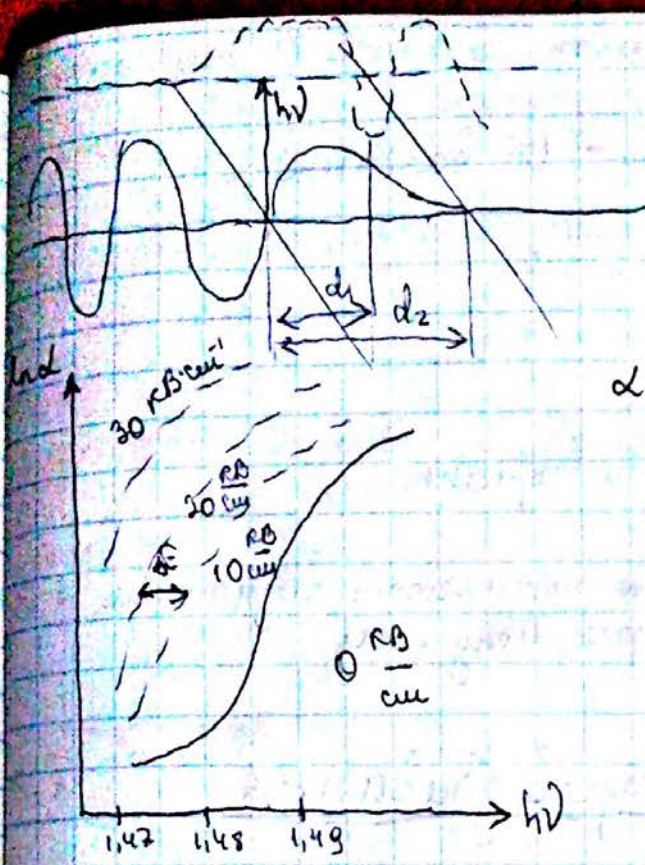 hν
d₁
d₂
lnα
α
30 кВ·см⁻¹
20 кВ/см
10 кВ/см
0 кВ/см
1,47 1,48 1,49 hν